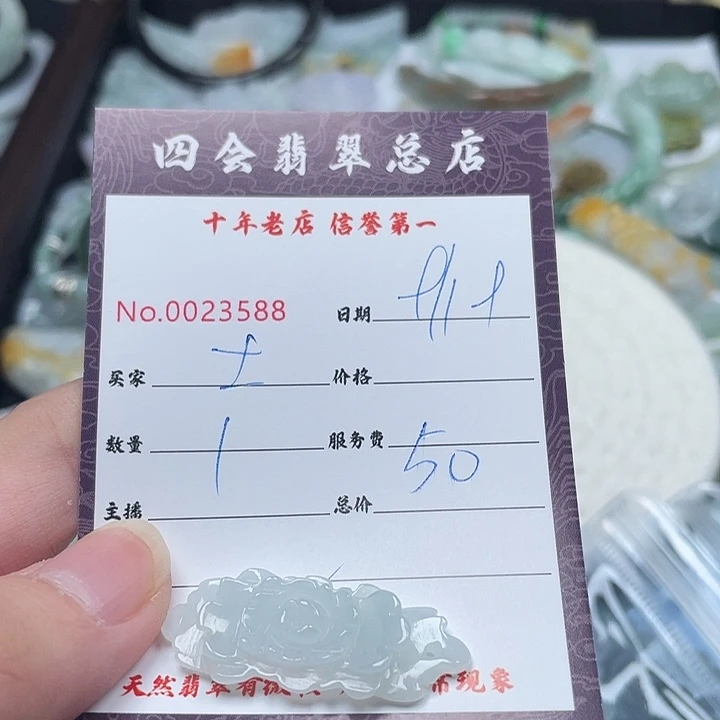 四会翡翠总店
十年老店 信誉第一
No.0023588 日期
买家 士 价格
数量 1 服务费 50
主播 总价
天然翡翠有 现象